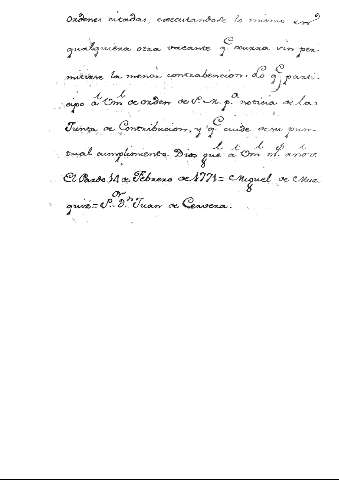 ordenes citadas, executandose lo mismo en
qualquiera otra vacante q.e ocurra sin per-
mitirse la menor contrabencion. Lo q.e parti-
cipo à V.m de orden de S. M. p.a noticia de la
Junta de Contribucion, y q.e cuide de su pun-
tual cumplimiento Dios gue à Vm m.s años.
El Pardo 14 de Febrero de 1771= Miguel de Muz-
quiz= S.or D.n Juan de Cervera.